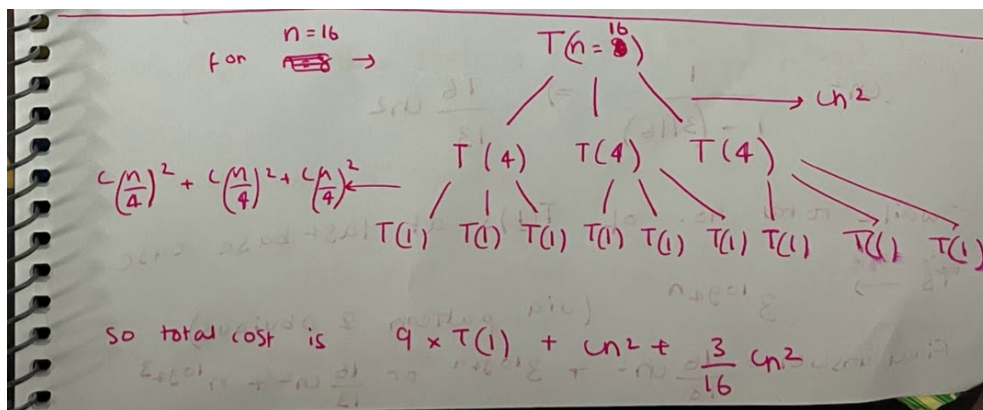 n=16
for n=8 → T(n=16)
→ cn²
T(4) T(4) T(4)
c(n/4)² + c(n/4)² + c(n/4)² ←
T(1) T(1) T(1) T(1) T(1) T(1) T(1) T(1) T(1)
so total cost is 9 × T(1) + cn² + 3/16 cn²